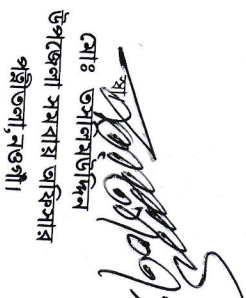 মোঃ তমিজউদ্দিন
উপজেলা সমবায় অফিসার
পত্নীতলা,নওগাঁ।